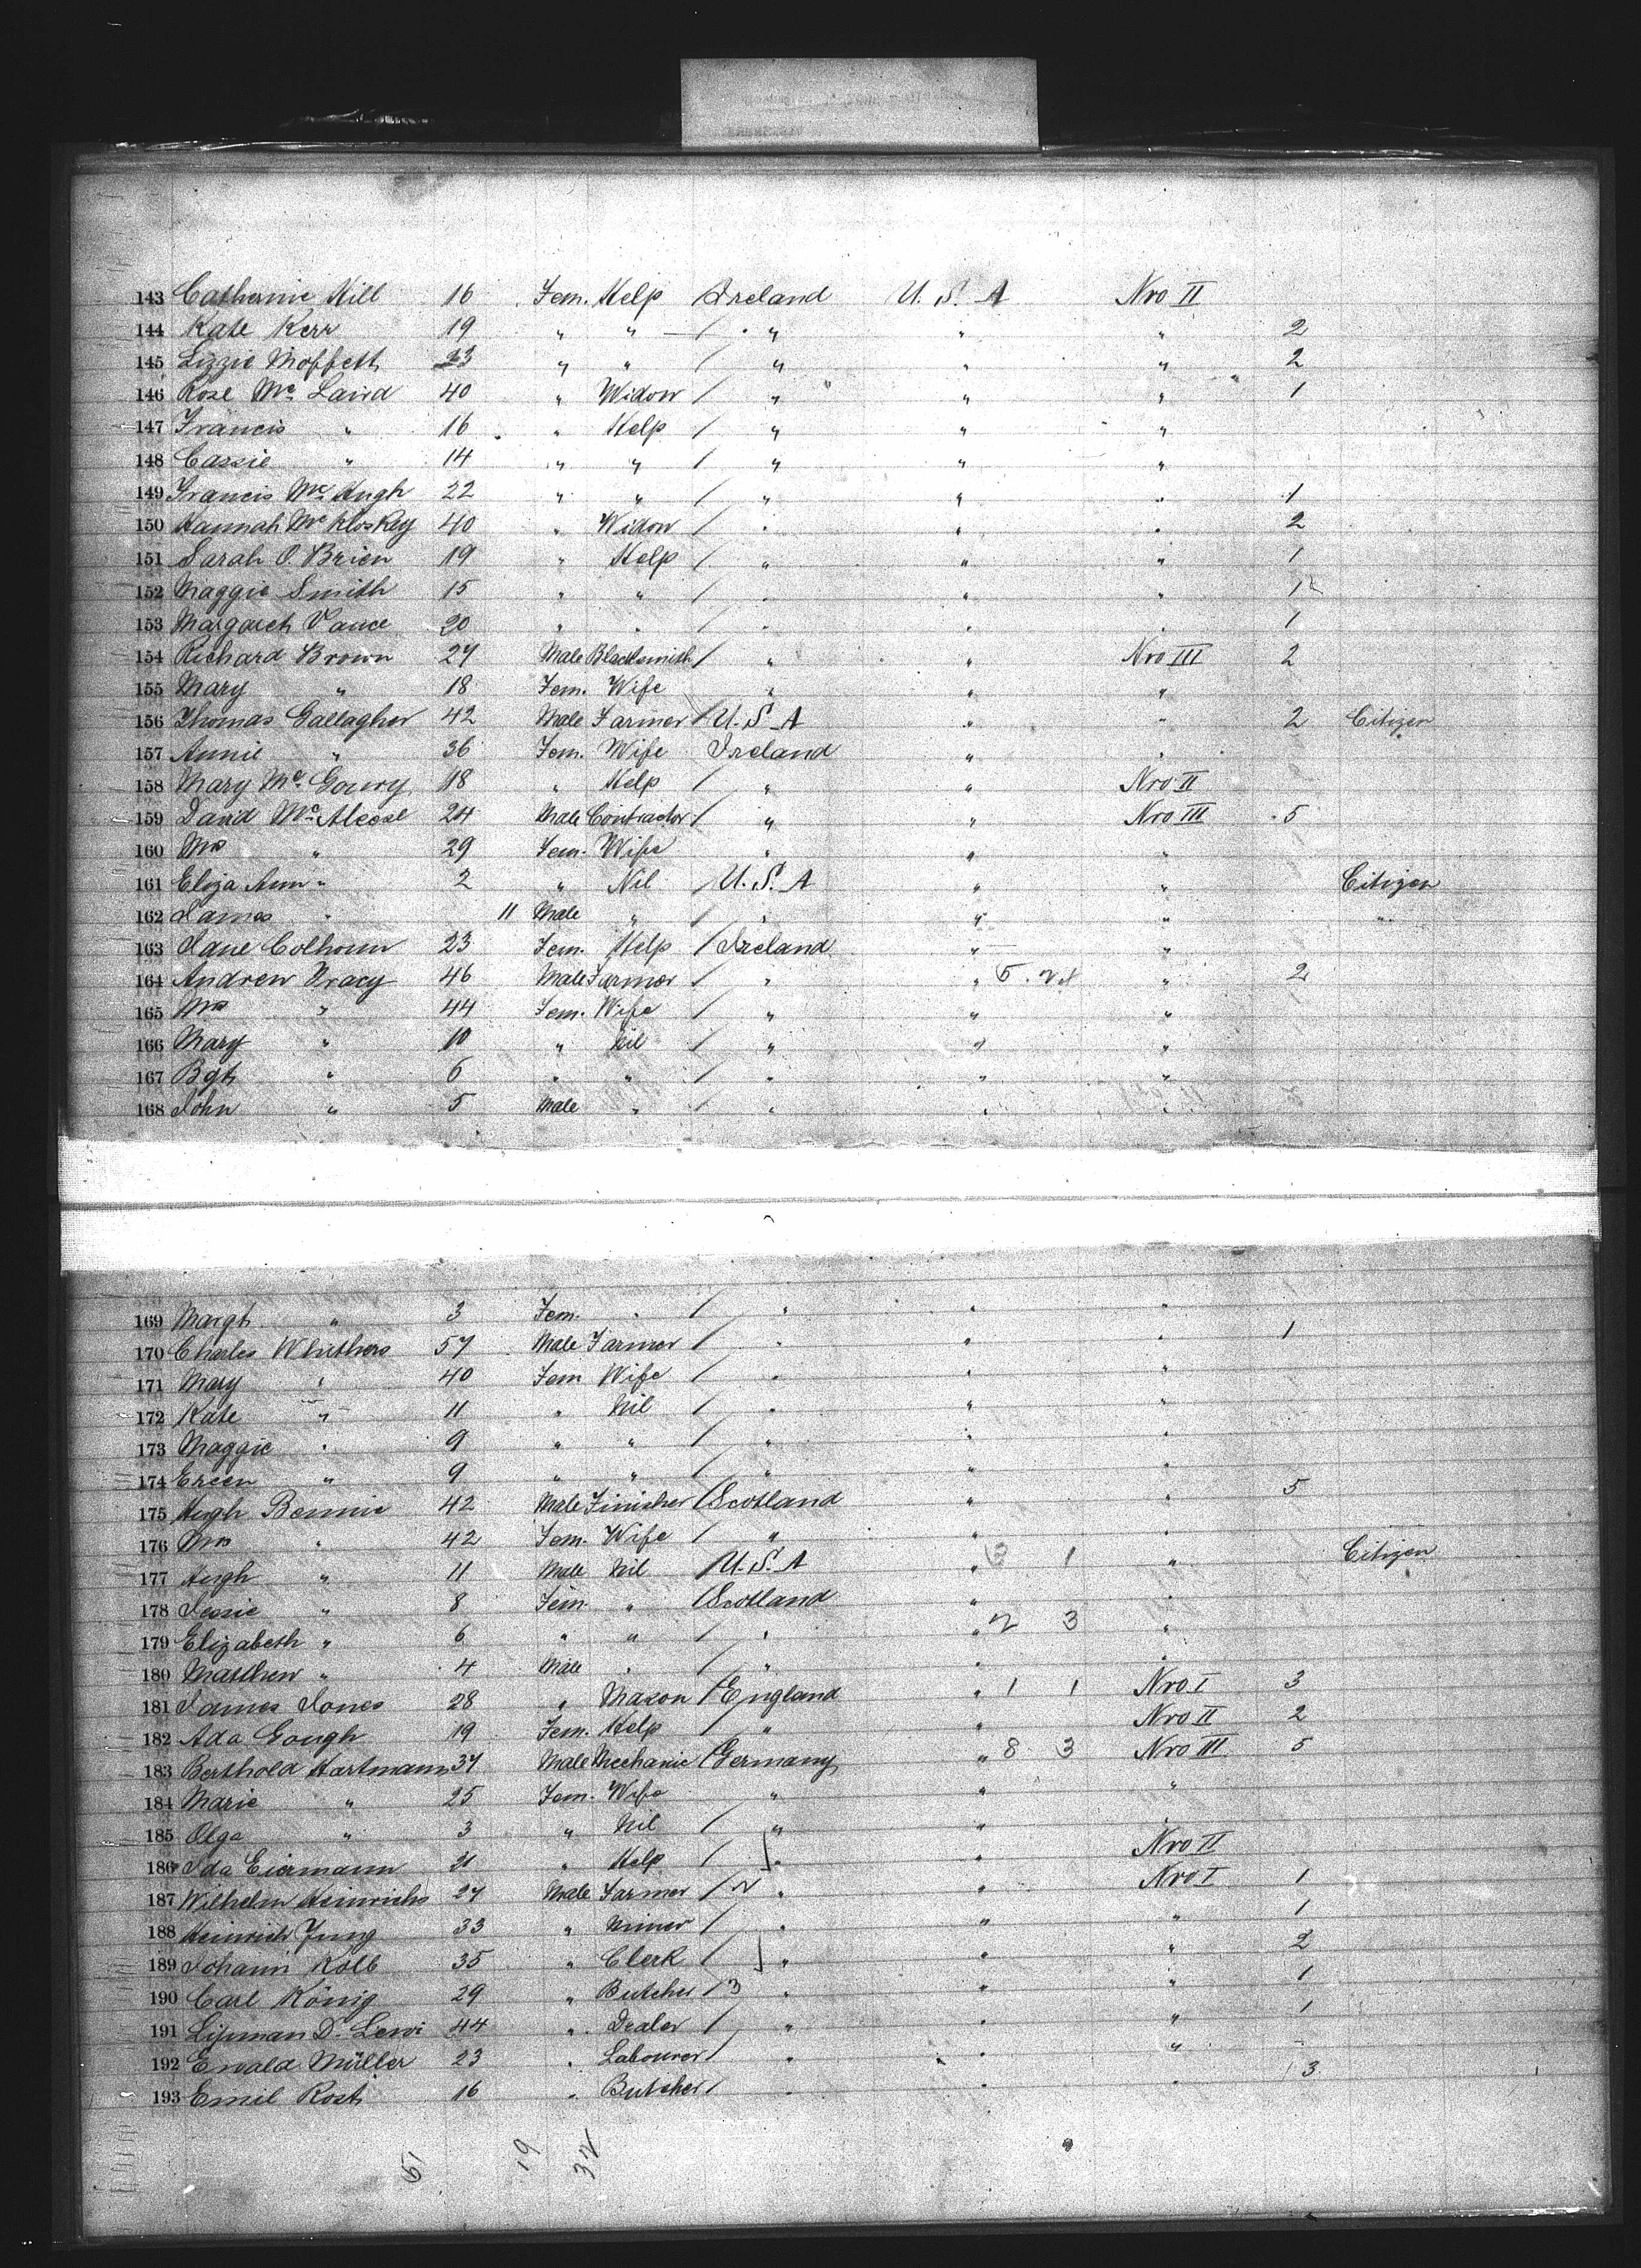 143 Catherine Hill 16 Fem. Help / Ireland U. S. A Nro II
144 Kate Kerr 19 " " / " " " 2
145 Lizzie Moffett 23 " " / " " " 2
146 Rose Mc Laird 40 " Widow / " " " 1
147 Francis " 16 " Help / " " "
148 Cassie " 14 " " / " " "
149 Francis Mc Hugh 22 " " / " " " 1
150 Hannah Mc Kloskey 40 " Widow / " " " 2
151 Sarah O. Brien 19 " Help / " " " 1
152 Maggie Smith 15 " " / " " " 1
153 Margareth Vance 20 " " / " " " 1
154 Richard Brown 27 Male Blacksmith / " " Nro III 2
155 Mary " 18 Fem. Wife " " "
156 Thomas Gallagher 42 Male Farmer / U. S. A " " 2 Citizen
157 Annie " 36 Fem. Wife Ireland " "
158 Mary Mc Gowry 18 " Help / " " Nro II
159 David Mc Aleese 24 Male Contractor / " " Nro III 5
160 Mrs " 29 Fem. Wife " " "
161 Eliza Ann " 2 " Nil / U. S. A " " Citizen
162 James " 11 Male " / " " " "
163 Jane Colhoun 23 Fem. Help / Ireland " "
164 Andrew Tracy 46 Male Farmer / " " 5 " 2
165 Mrs " 44 Fem. Wife / " " "
166 Mary " 10 " Nil / " " "
167 Bgt " 6 " " / " " "
168 John " 5 Male " / " " "
169 Margt " 3 Fem. " / " " "
170 Charles Whithers 57 Male Farmer / " " " 1
171 Mary " 40 Fem Wife / " " "
172 Kate " 11 " Nil / " " "
173 Maggie " 9 " " / " " "
174 " 9 " " / " " "
175 Hugh Bennie 42 Male Finisher / Scotland " " 5
176 Mrs " 42 Fem. Wife / " " "
177 Hugh " 11 Male Nil / U. S. A " 3 1 " Citizen
178 Jessie " 8 Fem. " / Scotland " "
179 Elizabeth " 6 " " / " " 2 3 "
180 Matthew " 4 Male " / " " "
181 James Jones 28 " Mason / England " 1 1 Nro I 3
182 Ada Gough 19 Fem. Help / " " Nro II 2
183 Berthold Hartmann 37 Male Mechanic / Germany " 8 3 Nro III 5
184 Marie " 25 Fem. Wife " " "
185 Olga " 3 " Nil / " " "
186 Ida Eiermann 21 " Help / " " Nro II
187 Wilhelm Heinrichs 27 Male Farmer / 2 " " Nro I 1
188 Heinrich Jung 33 " Miner / " " " 1
189 Johann Kolb 35 " Clerk / " " " 2
190 Carl König 29 " Butcher / 3 " " " 1
191 Lipman D. Lewi 44 " Dealer / " " " 1
192 Ewald Müller 23 " Labourer / " " "
193 Emil Rost 16 " Butcher / " " " 3
51 19 32